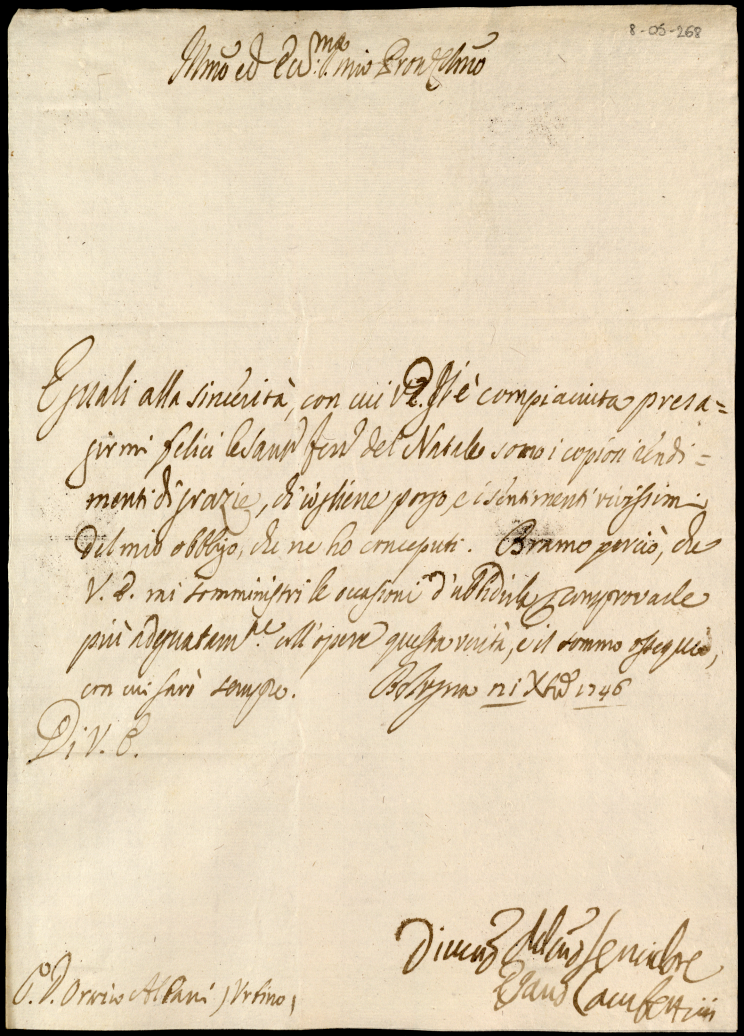 8-05-268
Illmo ed Ecc.mo mio Pron Colmo
Eguali alla sincerità, con cui V.E. si è compiaciuta presa=
girmi felici le Sante feste del Natale sono i copiosi rendi=
menti di grazie, che porgo, e i sentimenti vivissimi
del mio obbligo, che ne ho conceputi. Bramo perciò, che
V. E. mi somministri le occasioni d'ubbidirla, e comprovarle
più adequatam.te coll'opere questa verità, e il sommo ossequio,
con cui sarò sempre. Bologna 21 Xbre 1746
Di V. E.
D. Orazio Albani, Urbino,